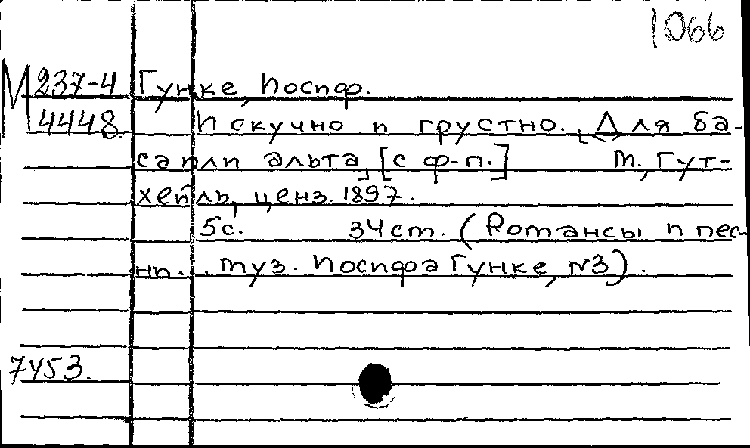 1066
М 237-4 Гунке, Иосиф.
4448 И скучно и грустно. [Для ба-
са или альта, [с ф-п.] М., Гут-
хейль, ценз. 1897.
5с. 34 ст. (Романсы и пес-
ни. . муз. Иосифа Гунке, №3).
7453.